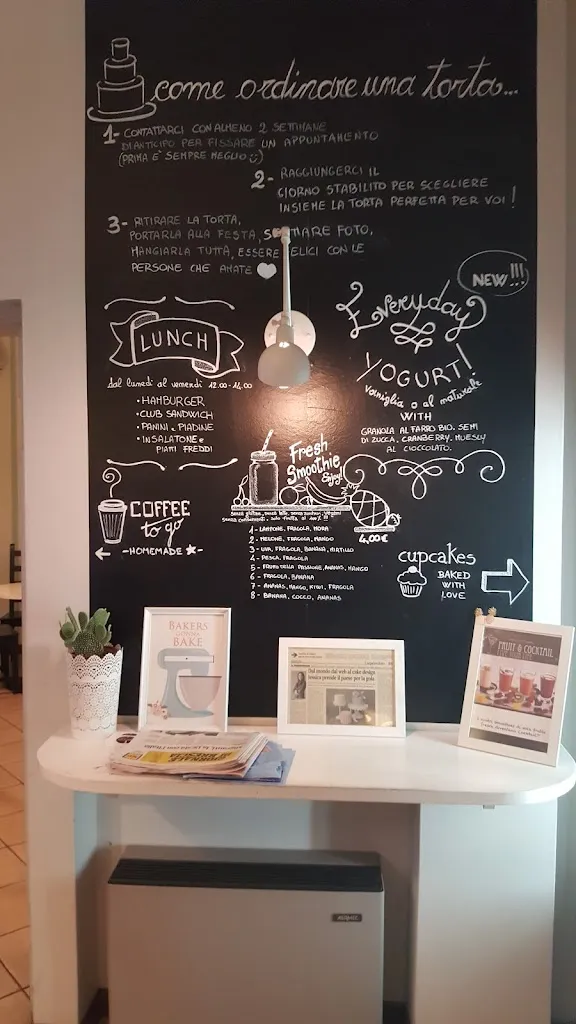 come ordinare una torta...
1- CONTATTARCI CON ALMENO 2 SETTIMANE
DI ANTICIPO PER FISSARE UN APPUNTAMENTO
(PRIMA È SEMPRE MEGLIO :)
2- RAGGIUNGERCI IL
GIORNO STABILITO PER SCEGLIERE
INSIEME LA TORTA PERFETTA PER VOI!
3- RITIRARE LA TORTA,
PORTARLA ALLA FESTA, S MARE FOTO,
MANGIARLA TUTTA, ESSERE ELICI CON LE
PERSONE CHE AMATE
NEW!!!
Everyday
YOGURT!
vaniglia o al naturale
WITH
GRANOLA AL FARRO BIO, SEMI
DI ZUCCA, CRANBERRY, MUESLY
AL CIOCCOLATO.
LUNCH
dal lunedì al venerdì 12.00-14.00
• HAMBURGER
• CLUB SANDWICH
• PANINI e PIADINE
• INSALATONE e
PIATTI FREDDI
Fresh
Smoothie
Enjoy!
senza glutine, senza latte, senza zuccheri, vegani
senza conservanti, solo frutta al 100% !!!
4,00€
1- LAMPONE, FRAGOLA, MORA
2- MELONE, FRAGOLA, MANGO
3- UVA, FRAGOLA, BANANA, MIRTILLO
4- PESCA, FRAGOLA
5- FRUTTO DELLA PASSIONE, ANANAS, MANGO
6- FRAGOLA, BANANA
7- ANANAS, MANGO, KIWI, FRAGOLA
8- BANANA, COCCO, ANANAS
COFFEE
to go
-HOMEMADE
cupcakes
BAKED
WITH
LOVE
BAKERS
GONNA
BAKE
Dal mondo dal web al cake design
Jessica prende il posto per la gola
FRUIT & COCKTAIL